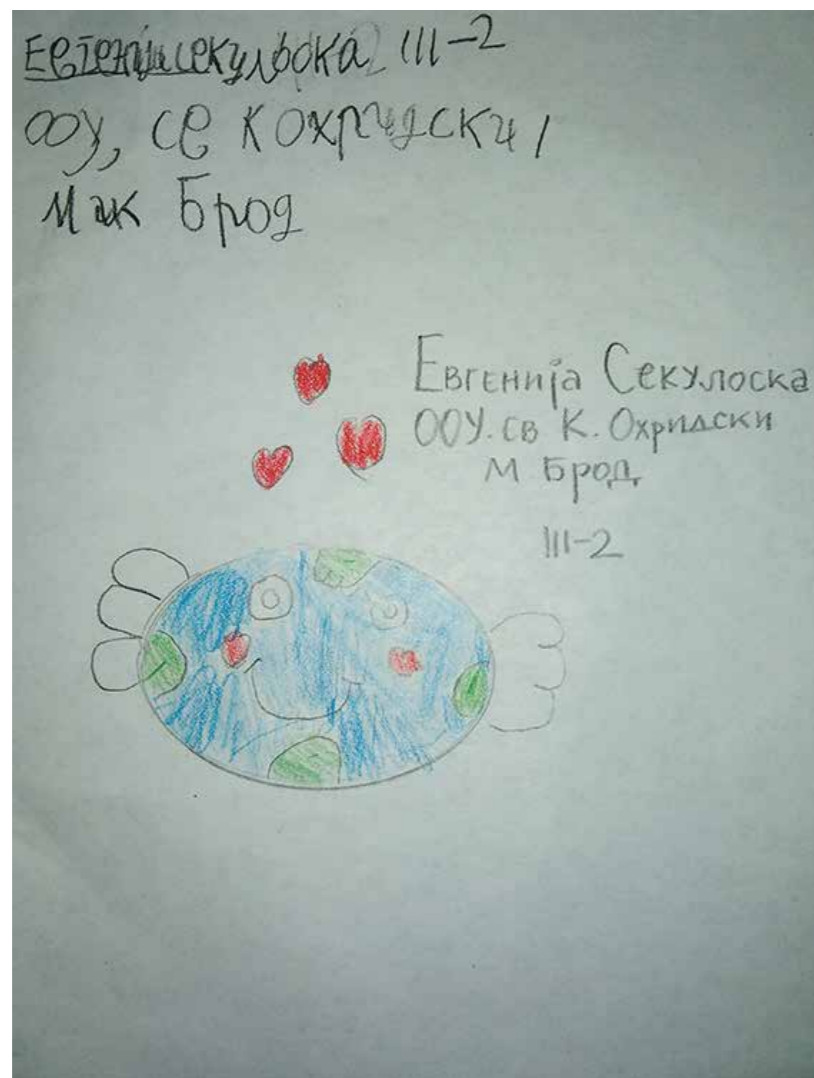 Евгенија Секулоска III-2
ООУ, св К Охридски,
Мак Брод
Евгенија Секулоска
ООУ. св К. Охридски
М Брод
III-2